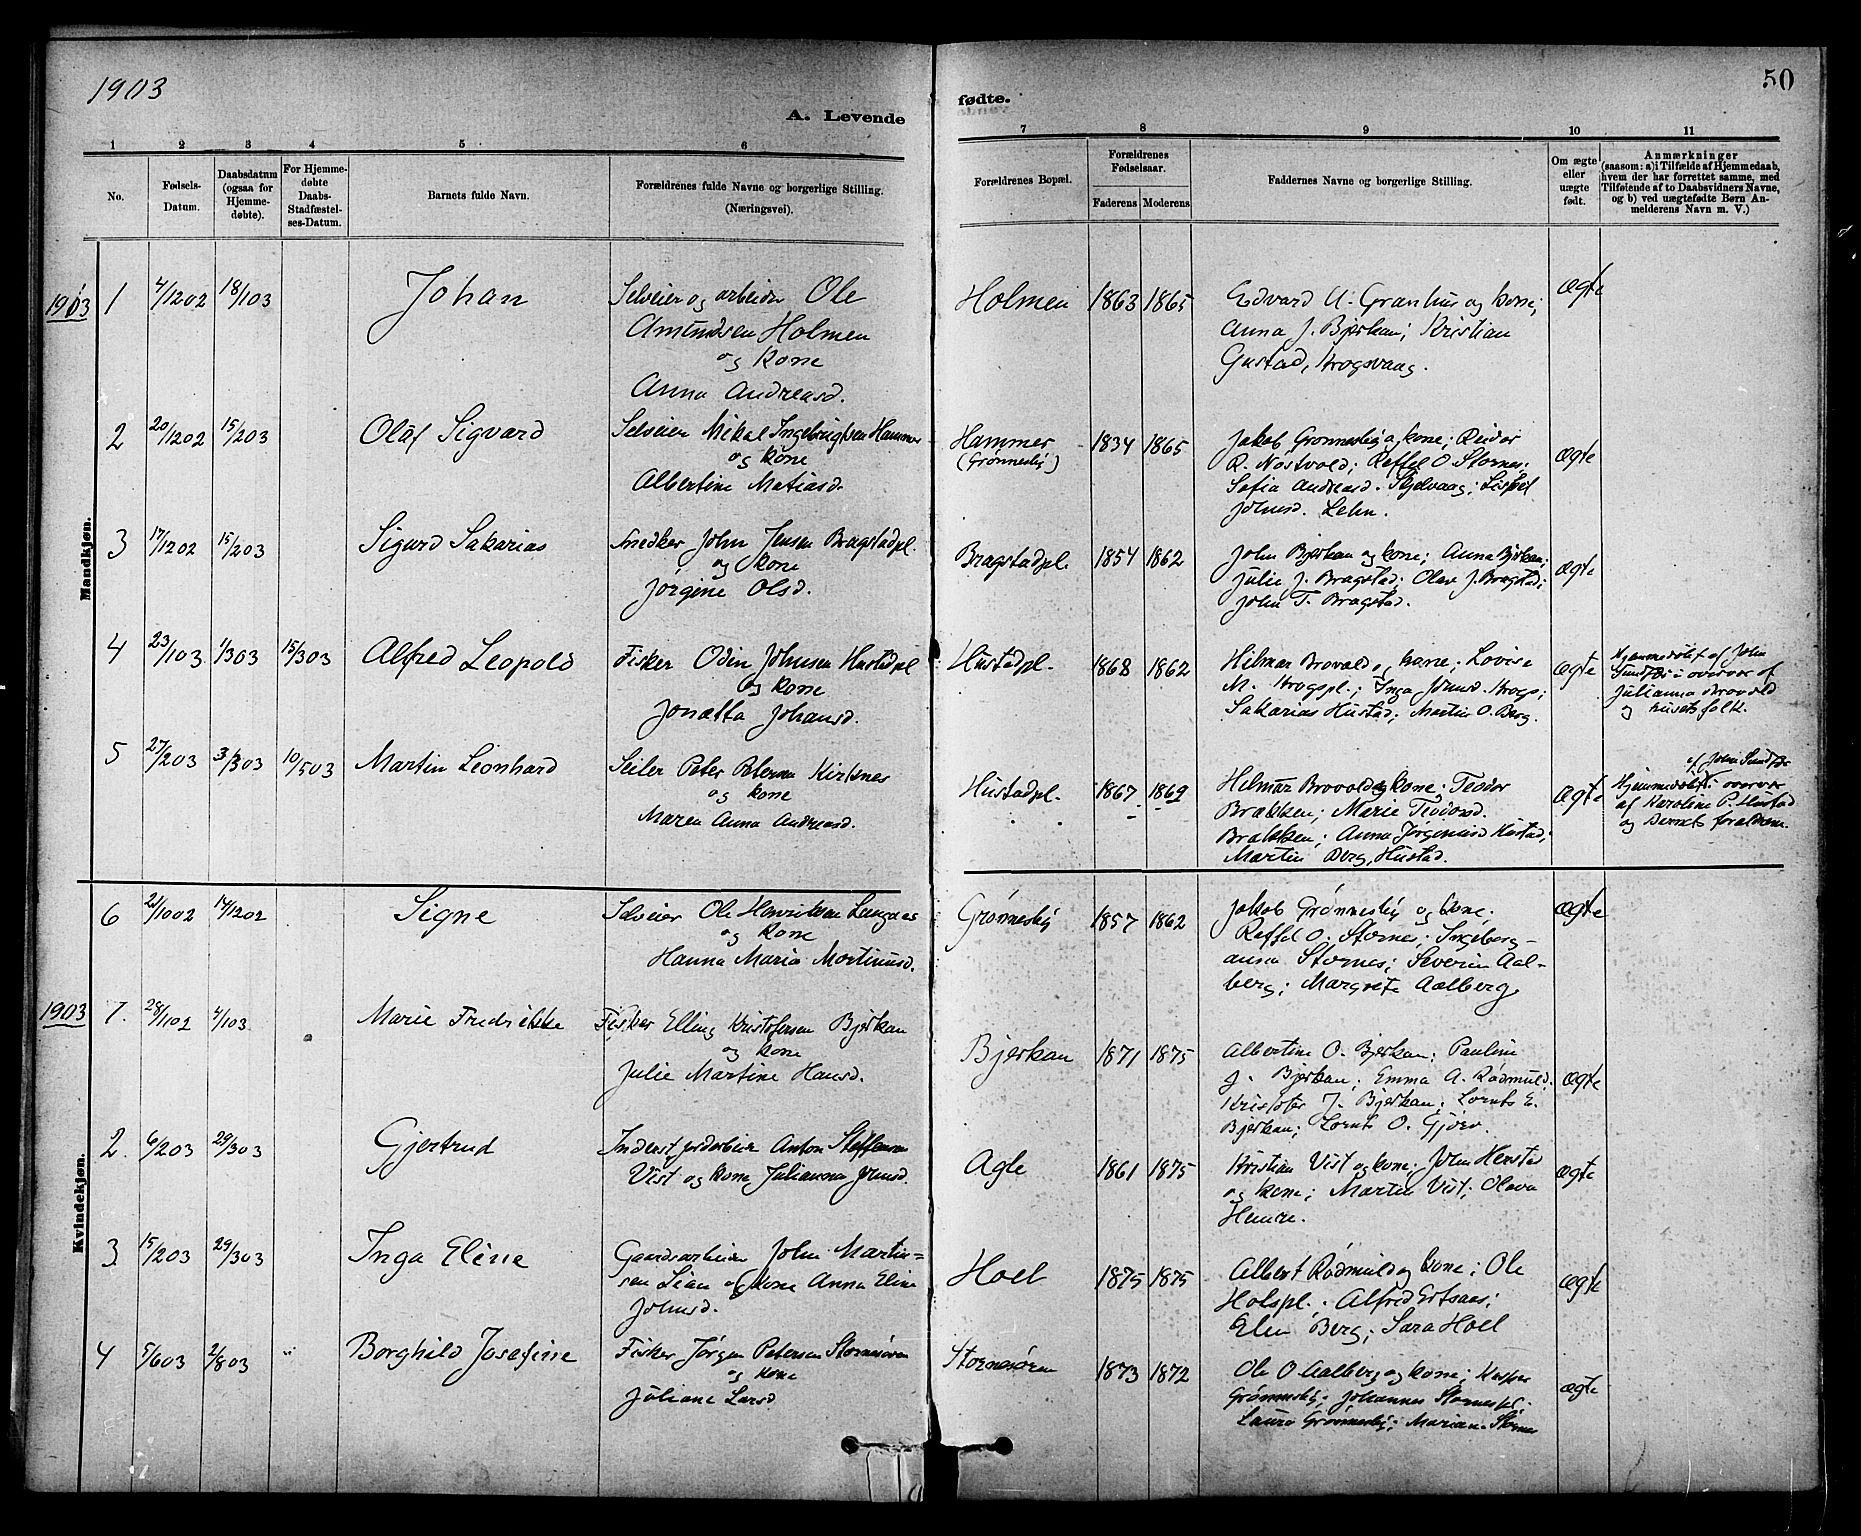 1903
50
A. Levende
fødte.
1 2 3 4 5 6 7 8 9 10 11
No.
Fødsels-
Datum.
Daabsdatum
(ogsaa for
Hjemme-
døbte).
For Hjemme-
døbte
Daabs-
Stadfæstel-
ses-Datum.
Barnets fulde Navn.
Forældrenes fulde Navne og borgerlige Stilling.
(Næringsvei).
Forældrenes Bopæl.
Forældrenes
Fødselsaar.
Faderens Moderens
Faddernes Navne og borgerlige Stilling.
Om ægte
eller
uægte
født.
Anmærkninger
(saasom: a) i Tilfælde af Hjemmedaab,
hvem der har forrettet samme, med
Tilføiende af to Daabsvidners Navne,
og b) ved uægtefødte Børn An-
melderens Navn m. V.)
Mandkjøn.
1903 1 4/1202 18/103 Johan
Selveier og arbeider Ole
Amundsen Holmen
og kone
Anna Andreasd.
Holmen 1863 1865
Edvard A. Granhus og kone;
Anna J. Bjerkan; Kristian
Gustad, Krogsvaag.
ægte
2 20/1202 15/203 Olaf Sigvard
Selveier Mikal Ingebrigtsen Hammer
og kone
Albertine Matiasd.
Hammer
(Grønnesby)
1834 1865
Jakob Grønnesby og kone; Reidar
R. Nøstvold; Reffel O. Stornes;
Sofia Andreasd. Skjelvaag;
Johnsd. Lehn.
ægte
3 17/1202 15/203 Sigurd Sakarias
Snedker John Jensen Bragstadpl.
og kone
Jørgine Olsd.
Bragstadpl. 1854 1862
John Bjerkan og kone; Anna Bjerkan;
Julie J. Bragstad; Olav J. Bragstad;
John T. Bragstad.
ægte
4 23/103 1/303 15/303 Alfred Leopold
Fisker Odin Johnsen Hustadpl
og kone
Jonetta Johansd.
Hustadpl. 1868 1862
Hilmar Brovold og kone; Lovise
M. Krogspl.; Inga Johnsd. Krogs;
Sakarias Hustad; Martin O. Berg.
ægte
Hjemmedøbt af John
Sundfær i overvær af
Julianna Brovold
og husets folk.
5 27/203 3/303 10/503 Martin Leonhard
Seiler Peter Petersen Kirknes
og kone
Maren Anna Andreasd.
Hustadpl. 1867 1869
Helmar Brovold og kone; Teodor
Brækken; Marie Teodorsd.
Brækken; Anna Jørgensd Hustad;
Martin Berg, Hustad.
ægte
af John Sundfær
Hjemmedøbt i overvær
af Karoline P. Hustad
og barnets forældre.
6 21/1002 14/1202 Signe
Selveier Ole Henriksen Langaas
og kone
Hanna Maria Mortinusd.
Grønnesby 1857 1862
Jakob Grønnesby og kone;
Reffel O. Stornes; Ingeborg-
anna Stornes; Severin Aal-
berg; Margrete Aalberg.
ægte
Kvindekjøn.
1903 1. 28/1102 4/103 Marie Fredrikke
Fisker Elling Kristofersen Bjerkan
og kone
Julie Martine Hansd.
Bjerkan 1871 1875
Albertine O. Bjerkan; Pauline
J. Bjerkan; Emma A. Rødmuld;
Kristofer J. Bjerkan; Lornts E.
Bjerkan; Lornts O. Gjørv.
ægte
2. 6/203 29/303 Gjertrud
Inderst, jordarbeider Anton Steffensen
Vist og kone Julianna Johnsd.
Agle 1861 1875
Kristian Vist og kone; John Henstad
og kone; Martin Vist; Olava
Hemre.
ægte
3. 15/203 29/303 Inga Eline
Gaardsarbeider John Martin=
sen Lian og kone Anna Eline
Johnsd.
Hoel 1875 1875
Albert Rødmuld og kone; Ole
Holspl.; Alfred Ertsaas;
Elen Berg; Sara Hoel
ægte
4 5/603 2/803 " Borghild Josefine
Fisker Jørgen Petersen Stornesøren
og kone
Juliane Larsd
Stornesøren 1873 1872
Ole O Aalberg og kone; Kasper
Grønnesby; Johannes Stornespl.
Laura Grønnesby; Marian Stornes
ægte